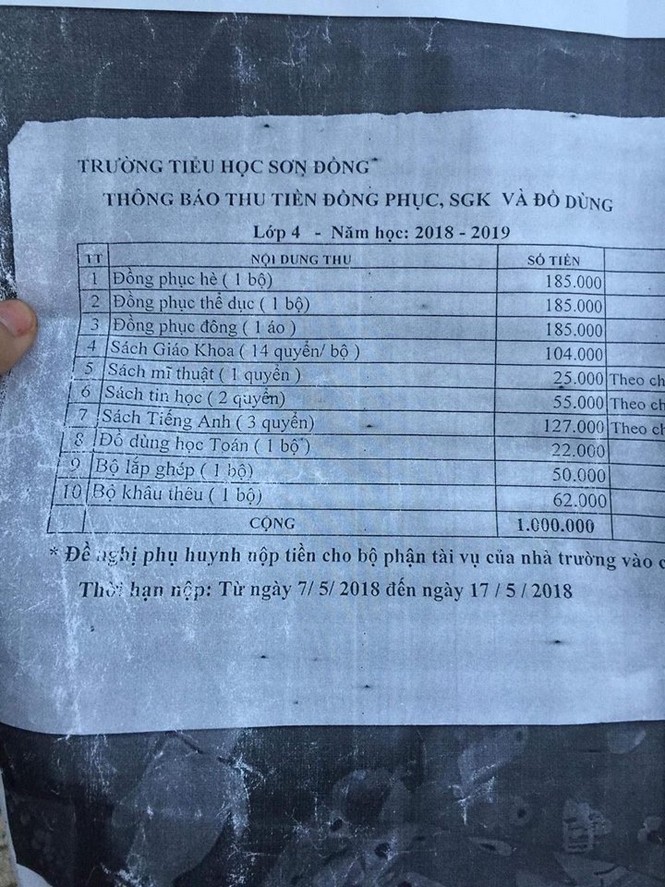 TRƯỜNG TIỂU HỌC SƠN ĐỒNG
THÔNG BÁO THU TIỀN ĐỒNG PHỤC, SGK VÀ ĐỒ DÙNG
Lớp 4 - Năm học: 2018 - 2019
TT NỘI DUNG THU SỐ TIỀN
1 Đồng phục hè ( 1 bộ) 185.000
2 Đồng phục thể dục ( 1 bộ) 185.000
3 Đồng phục đông ( 1 áo ) 185.000
4 Sách Giáo Khoa ( 14 quyển/ bộ ) 104.000
5 Sách mĩ thuật ( 1 quyển ) 25.000 Theo
6 Sách tin học ( 2 quyển) 55.000 Theo
7 Sách Tiếng Anh ( 3 quyển) 127.000 Theo
8 Đồ dùng học Toán ( 1 bộ ) 22.000
9 Bộ lắp ghép ( 1 bộ) 50.000
10 Bộ khâu thêu ( 1 bộ) 62.000
CỘNG 1.000.000
* Đề nghị phụ huynh nộp tiền cho bộ phận tài vụ của nhà trường vào
Thời hạn nộp: Từ ngày 7/ 5/ 2018 đến ngày 17 / 5 / 2018